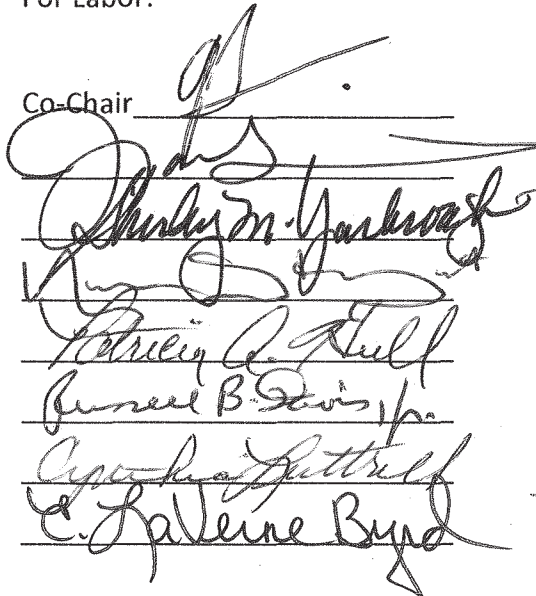 For Labor:
Co-Chair
Shirley M. Yarbrough
Patricia A. Hull
Russell B. Davis, Jr.
Cynthia Luttrell
C. LaVerne Byrd